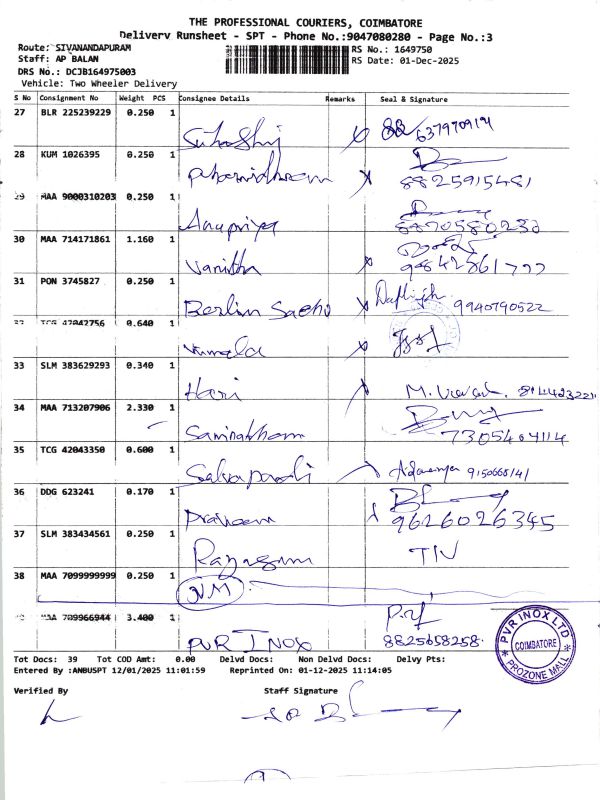 THE PROFESSIONAL COURIERS, COIMBATORE
Delivery Runsheet - SPT - Phone No.:9047080280 - Page No.:3
Route: SIVANANDAPURAM
RS No.: 1649750
Staff: AP BALAN
RS Date: 01-Dec-2025
DRS No.: DCJB164975003
Vehicle: Two Wheeler Delivery
S No Consignment No Weight PCS Consignee Details Remarks Seal & Signature
27 BLR 225239229 0.250 1
28 KUM 1026395 0.250 1
8825915481
29 MAA 9000310203 0.250 1
Anupriya 8870580230
30 MAA 714171861 1.160 1
Vanitha
31 PON 3745827 0.250 1
Berlin 9940790522
TCG 42042756 0.640 1
Vimala
33 SLM 383629293 0.340 1
Hari
34 MAA 713207906 2.330 1
7305404114
35 TCG 42043350 0.600 1
36 DDG 623241 0.170 1
Praveen 9626026345
37 SLM 383434561 0.250 1
38 MAA 7099999999 0.250 1
NM
MAA 709966944 3.400 1
PVR INOX 8825658258
PVR INOX LTD
COIMBATORE
PROZONE MALL
Tot Docs: 39 Tot COD Amt: 0.00 Delvd Docs: Non Delvd Docs: Delvy Pts:
Entered By :ANBUSPT 12/01/2025 11:01:59 Reprinted On: 01-12-2025 11:14:05
Verified By Staff Signature